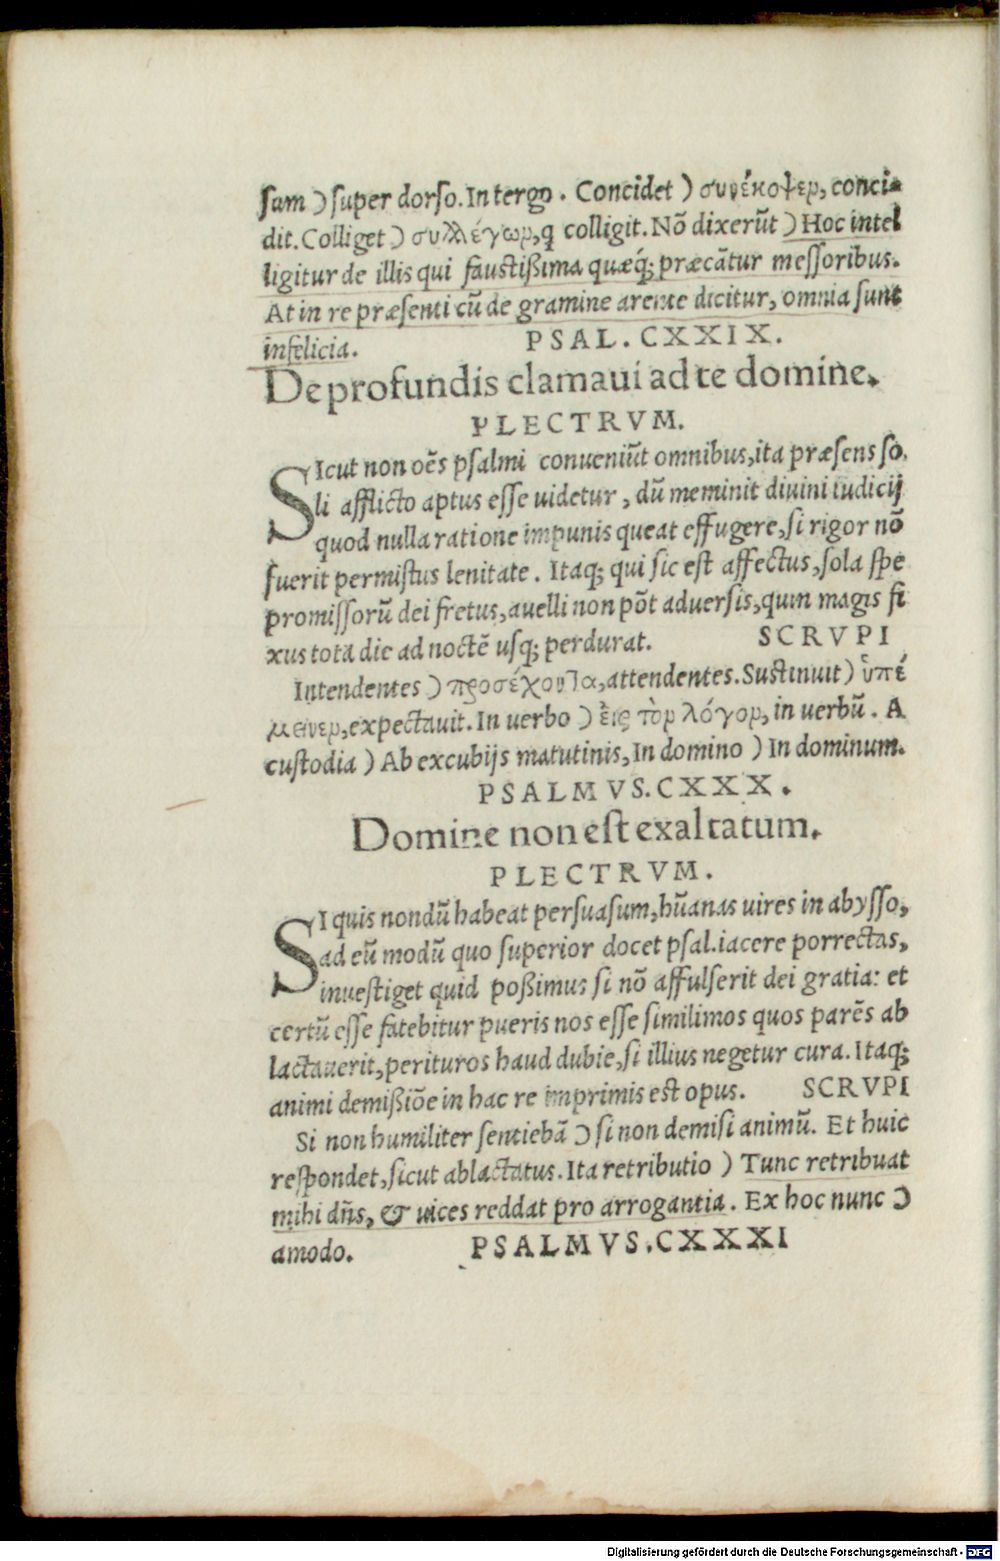 sum ) super dorso. In tergo. Concidet ) συνέκοψεν, conci-
dit. Colliget ) συλλέγων, q colligit. Nõ dixerũt ) Hoc intel
ligitur de illis qui faustißima quæq́; præcãtur messoribus.
At in re præsenti cũ de gramine arente dicitur, omnia sunt
infelicia. PSAL. CXXIX.
De profundis clamaui ad te domine.
PLECTRVM.
SIcut non oẽs psalmi conueniũt omnibus, ita præsens so,
li afflicto aptus esse uidetur, dũ meminit diuini iudicij
quod nulla ratione impunis queat effugere, si rigor nõ
fuerit permistus lenitate. Itaq; qui sic est affectus, sola spe
promissorũ dei fretus, auelli non põt aduersis, quin magis fi
xus tota die ad noctẽ usq; perdurat. SCRVPI
Intendentes ) προσέχοντα, attendentes. Sustinuit ) ὑπέ
μεινεν, expectauit. In uerbo ) εἰς τὸν λόγον, in uerbũ. A
custodia ) Ab excubijs matutinis, In domino ) In dominum.
PSALMVS. CXXX.
Domine non est exaltatum.
PLECTRVM.
SI quis nondũ habeat persuasum, hũanas uires in abysso,
ad eũ modũ quo superior docet psal. iacere porrectas,
inuestiget quid poßimus si nõ affulserit dei gratia: et
certũ esse fatebitur pueris nos esse similimos quos parẽs ab
lactauerit, perituros haud dubie, si illius negetur cura. Itaq;
animi demißiõe in hac re imprimis est opus. SCRVPI
Si non humiliter sentiebã Ɔ si non demisi animũ. Et huic
respondet, sicut ablactatus. Ita retributio ) Tunc retribuat
mihi dñs, & uices reddat pro arrogantia. Ex hoc nunc Ɔ
amodo. PSALMVS. CXXXI
Digitalisierung gefördert durch die Deutsche Forschungsgemeinschaft - DFG